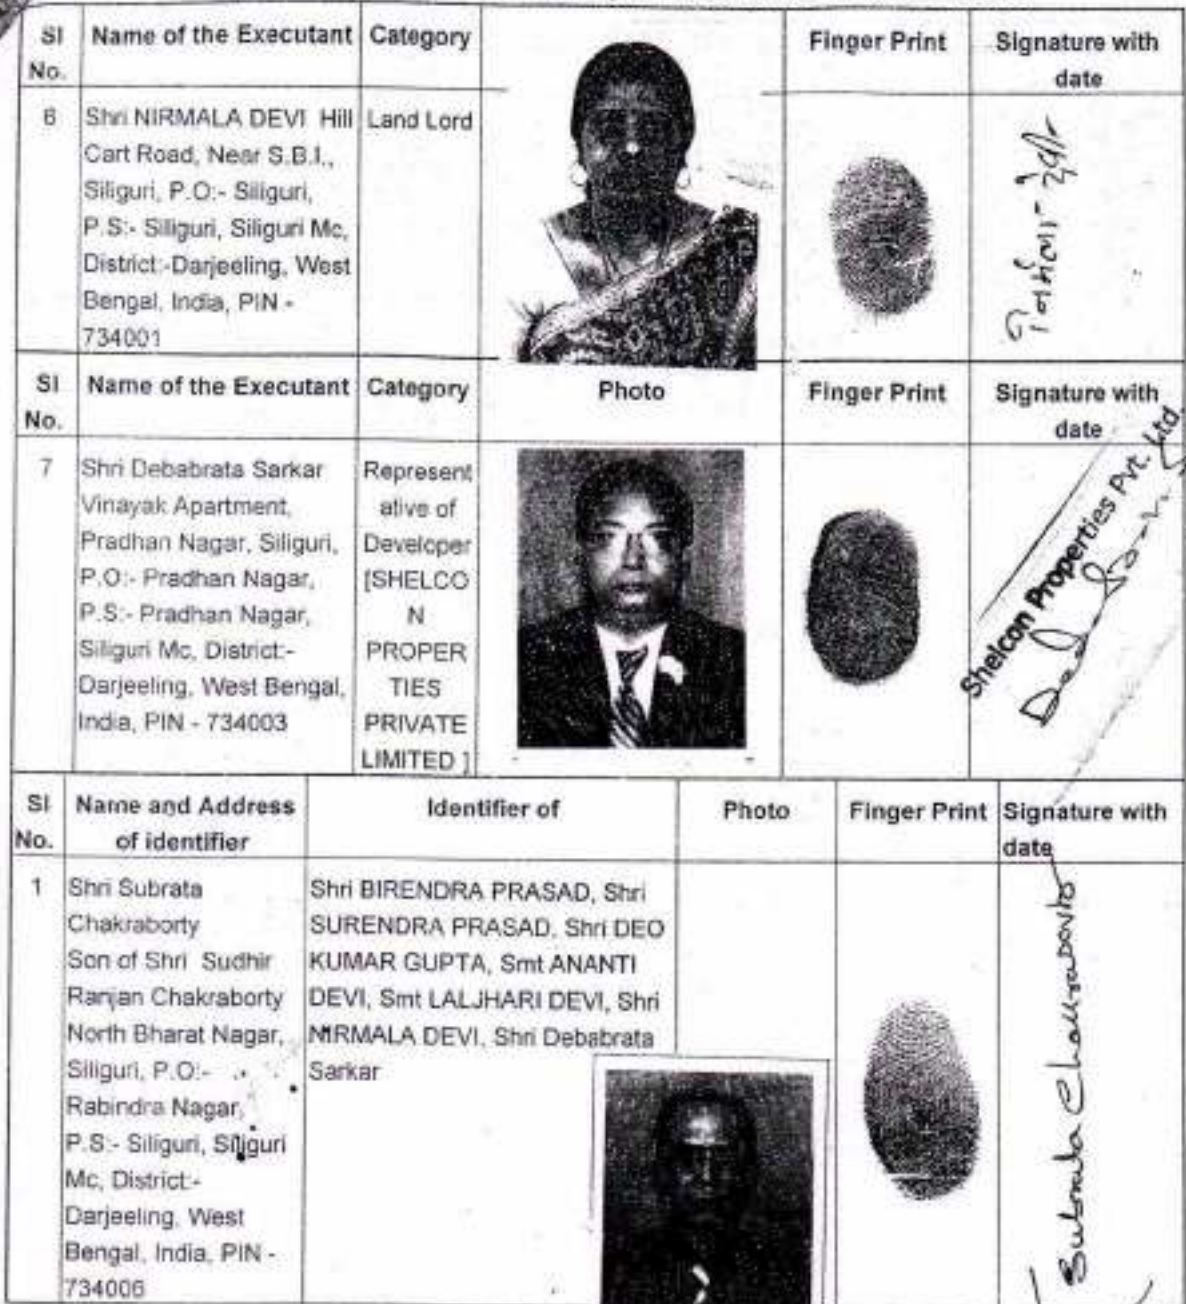 Sl No. Name of the Executant Category Finger Print Signature with date
6
Shri NIRMALA DEVI Hill
Cart Road, Near S.B.I.,
Siliguri, P.O:- Siliguri,
P.S:- Siliguri, Siliguri Mc,
District:-Darjeeling, West
Bengal, India, PIN -
734001
Land Lord
निर्मला देवी
Sl No. Name of the Executant Category Photo Finger Print Signature with date
7
Shri Debabrata Sarkar
Vinayak Apartment,
Pradhan Nagar, Siliguri,
P.O:- Pradhan Nagar,
P.S:- Pradhan Nagar,
Siliguri Mc, District:-
Darjeeling, West Bengal,
India, PIN - 734003
Represent
ative of
Developer
[SHELCO
N
PROPER
TIES
PRIVATE
LIMITED ]
Shelcon Properties Pvt. Ltd.
Sl No. Name and Address of identifier Identifier of Photo Finger Print Signature with date
1
Shri Subrata
Chakraborty
Son of Shri Sudhir
Ranjan Chakraborty
North Bharat Nagar,
Siliguri, P.O:-
Rabindra Nagar,
P.S:- Siliguri, Siliguri
Mc, District:-
Darjeeling, West
Bengal, India, PIN -
734006
Shri BIRENDRA PRASAD, Shri
SURENDRA PRASAD, Shri DEO
KUMAR GUPTA, Smt ANANTI
DEVI, Smt LALJHARI DEVI, Shri
NIRMALA DEVI, Shri Debabrata
Sarkar
Subrata Chakraborty